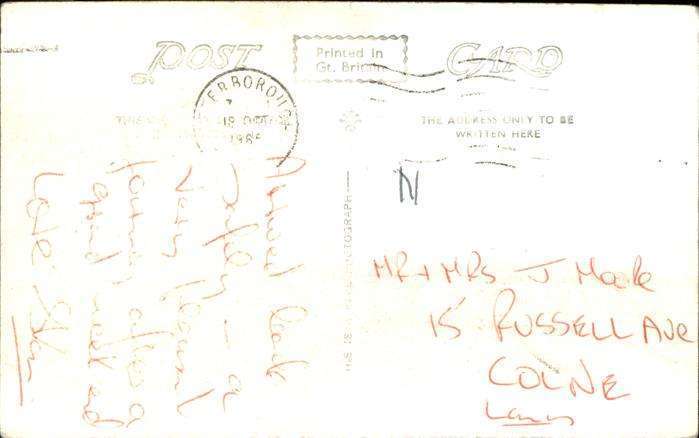 POST CARD
Printed in
Gt. Britain
ERBOROUGH
19 OCT
196
THE ADDRESS ONLY TO BE
WRITTEN HERE
Arrived back
safely - a
very pleasant
journey after a
grand week end
Love
N
MR + MRS J Moore
15 RUSSELL AVE
COLNE
Lancs